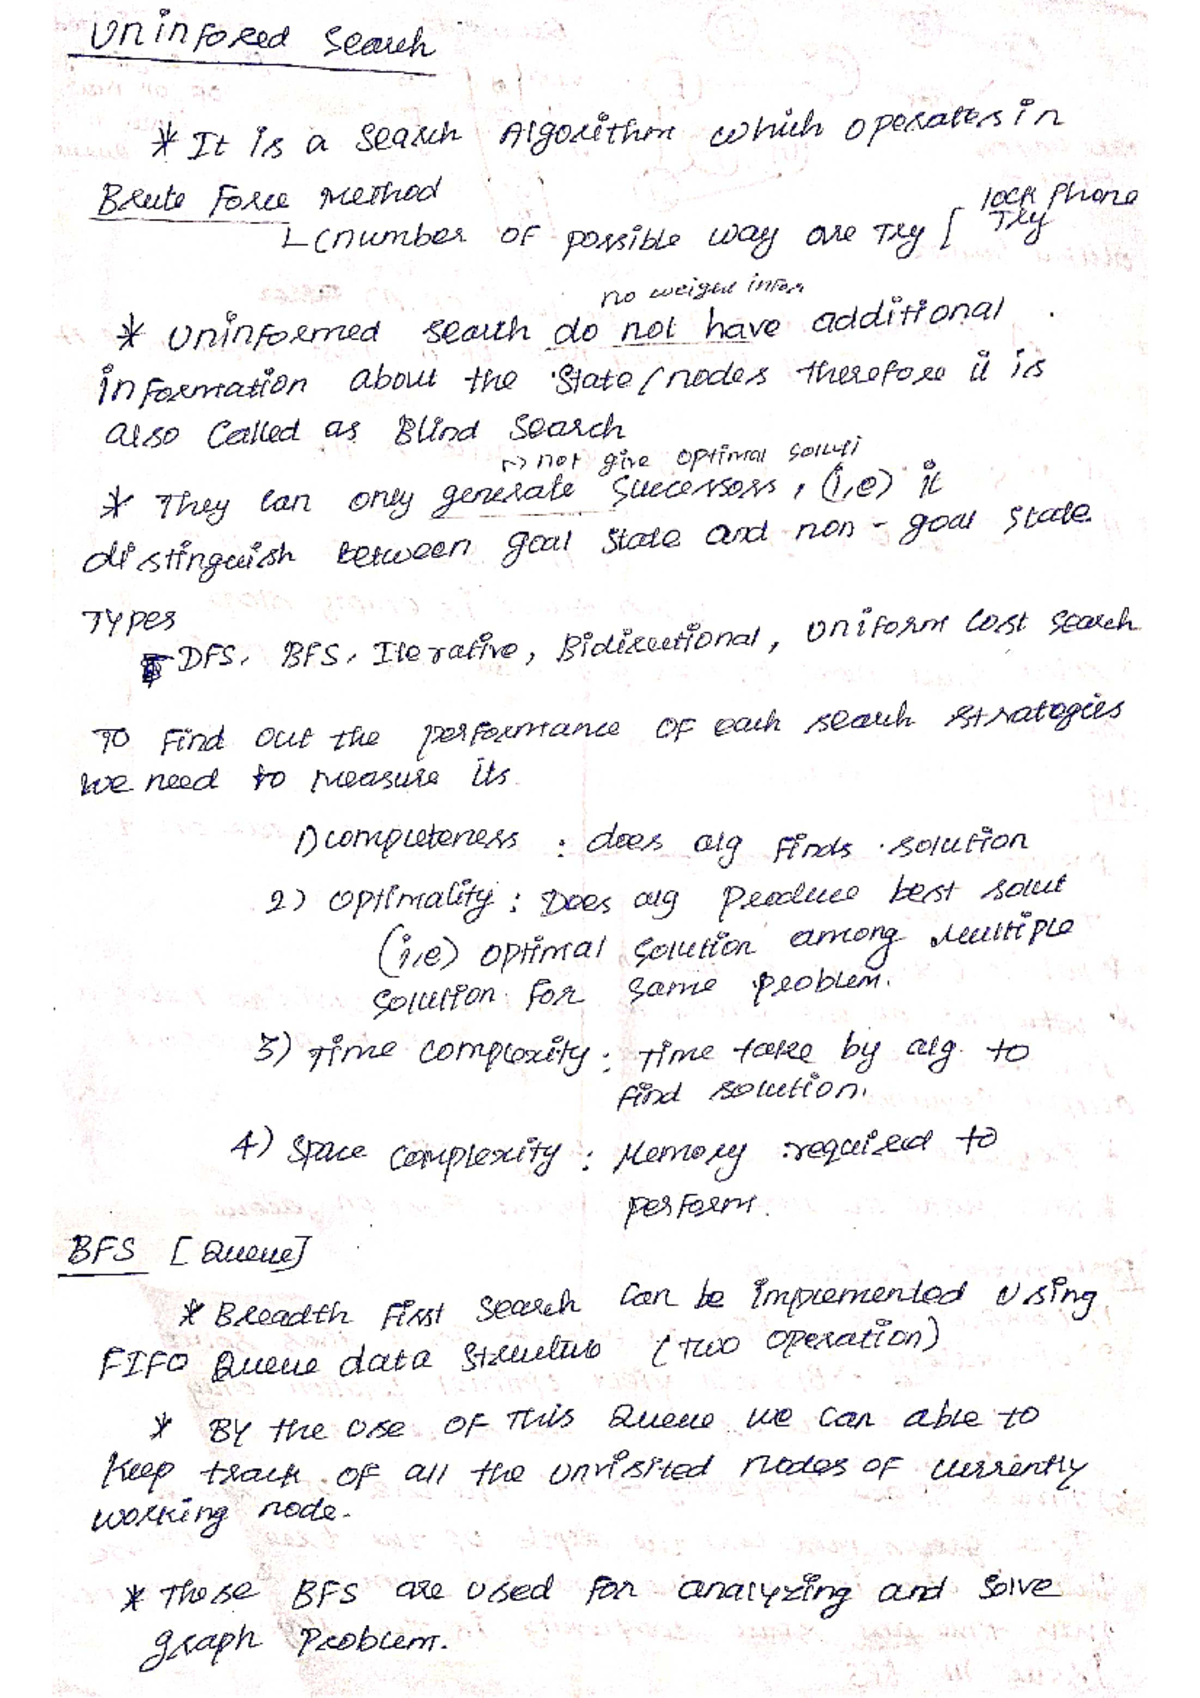 Uninfored Search
* It is a Search Algorithm which operates in
Brute Force Method
L (number of possible way are Try [ lock phone
Try
no weiged infor
* Uninformed search do not have additional
information about the State/nodes therefore it is
also Called as Blind Search
-> not give optimal soluti
* They can only generate successors, (i,e) it
distinguish between goal state and non-goal state.
Types
DFS, BFS, Iterative, Bidirectional, Uniform Cost Search
To Find out the performance of each search strategies
we need to measure its.
1) completeness : does alg finds solution
2) optimality : Does alg Produce best solut
(i,e) optimal solution among multiple
solution for same problem.
3) Time complexity : Time take by alg. to
find solution.
4) Space complexity : Memory required to
perform.
BFS [Queue]
* Breadth First Search can be implemented using
FIFO Queue data structure (Two operation)
* By the use of this Queue we can able to
keep track of all the unvisited nodes of currently
working node.
* These BFS are used for analyzing and solve
graph Problem.